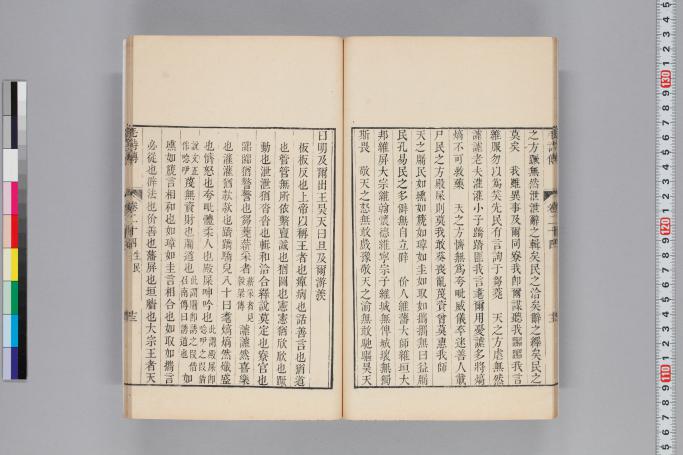 之方蹶無然泄泄辭之輯矣民之洽矣辭之繹矣民之
莫矣　我雖異事及爾同寮我卽爾謀聽我囂囂我言
維服勿以爲笑先民有言詢于芻蕘　天之方虐無然
謔謔老夫灌灌小子蹻蹻匪我言耄爾用憂謔多將熇
熇不可救藥　天之方懠無爲夸毗威儀卒迷善人載
尸民之方殿屎則莫我敢葵喪亂蔑資曾莫惠我師
天之牖民如壎如篪如璋如圭如取如攜攜無曰益牖
民孔易民之多辟無自立辟　价人維藩大師維垣大
邦維屏大宗維翰懷德維寧宗子維城無俾城壞無獨
斯畏　敬天之怒無敢戲豫敬天之渝無敢馳驅昊天
曰明及爾出王昊天曰旦及爾游羨
板板反也上帝以稱王者也癉病也話善言也猶道
也管管無所依繫亶誠也猶圖也憲憲猶欣欣也蹶
動也泄泄猶沓沓也輯和洽合繹說莫定也寮官也
囂囂猶謷謷也芻蕘薪采者謔謔然喜樂
也灌灌猶款款也蹻蹻驕皃八十曰耄熇熇然熾盛
也懠怒也夸毗體柔人也殿屎呻吟也此謂殿屎卽唸㕧之叚借
說文作唸㕧蔑無資財也牖道也此謂牖卽誘之叚借召南傳曰誘道也如
壎如篪言相和也如璋如圭言相合也如取如攜言
必從也辟法也价善也藩屏也垣牆也大宗王者天